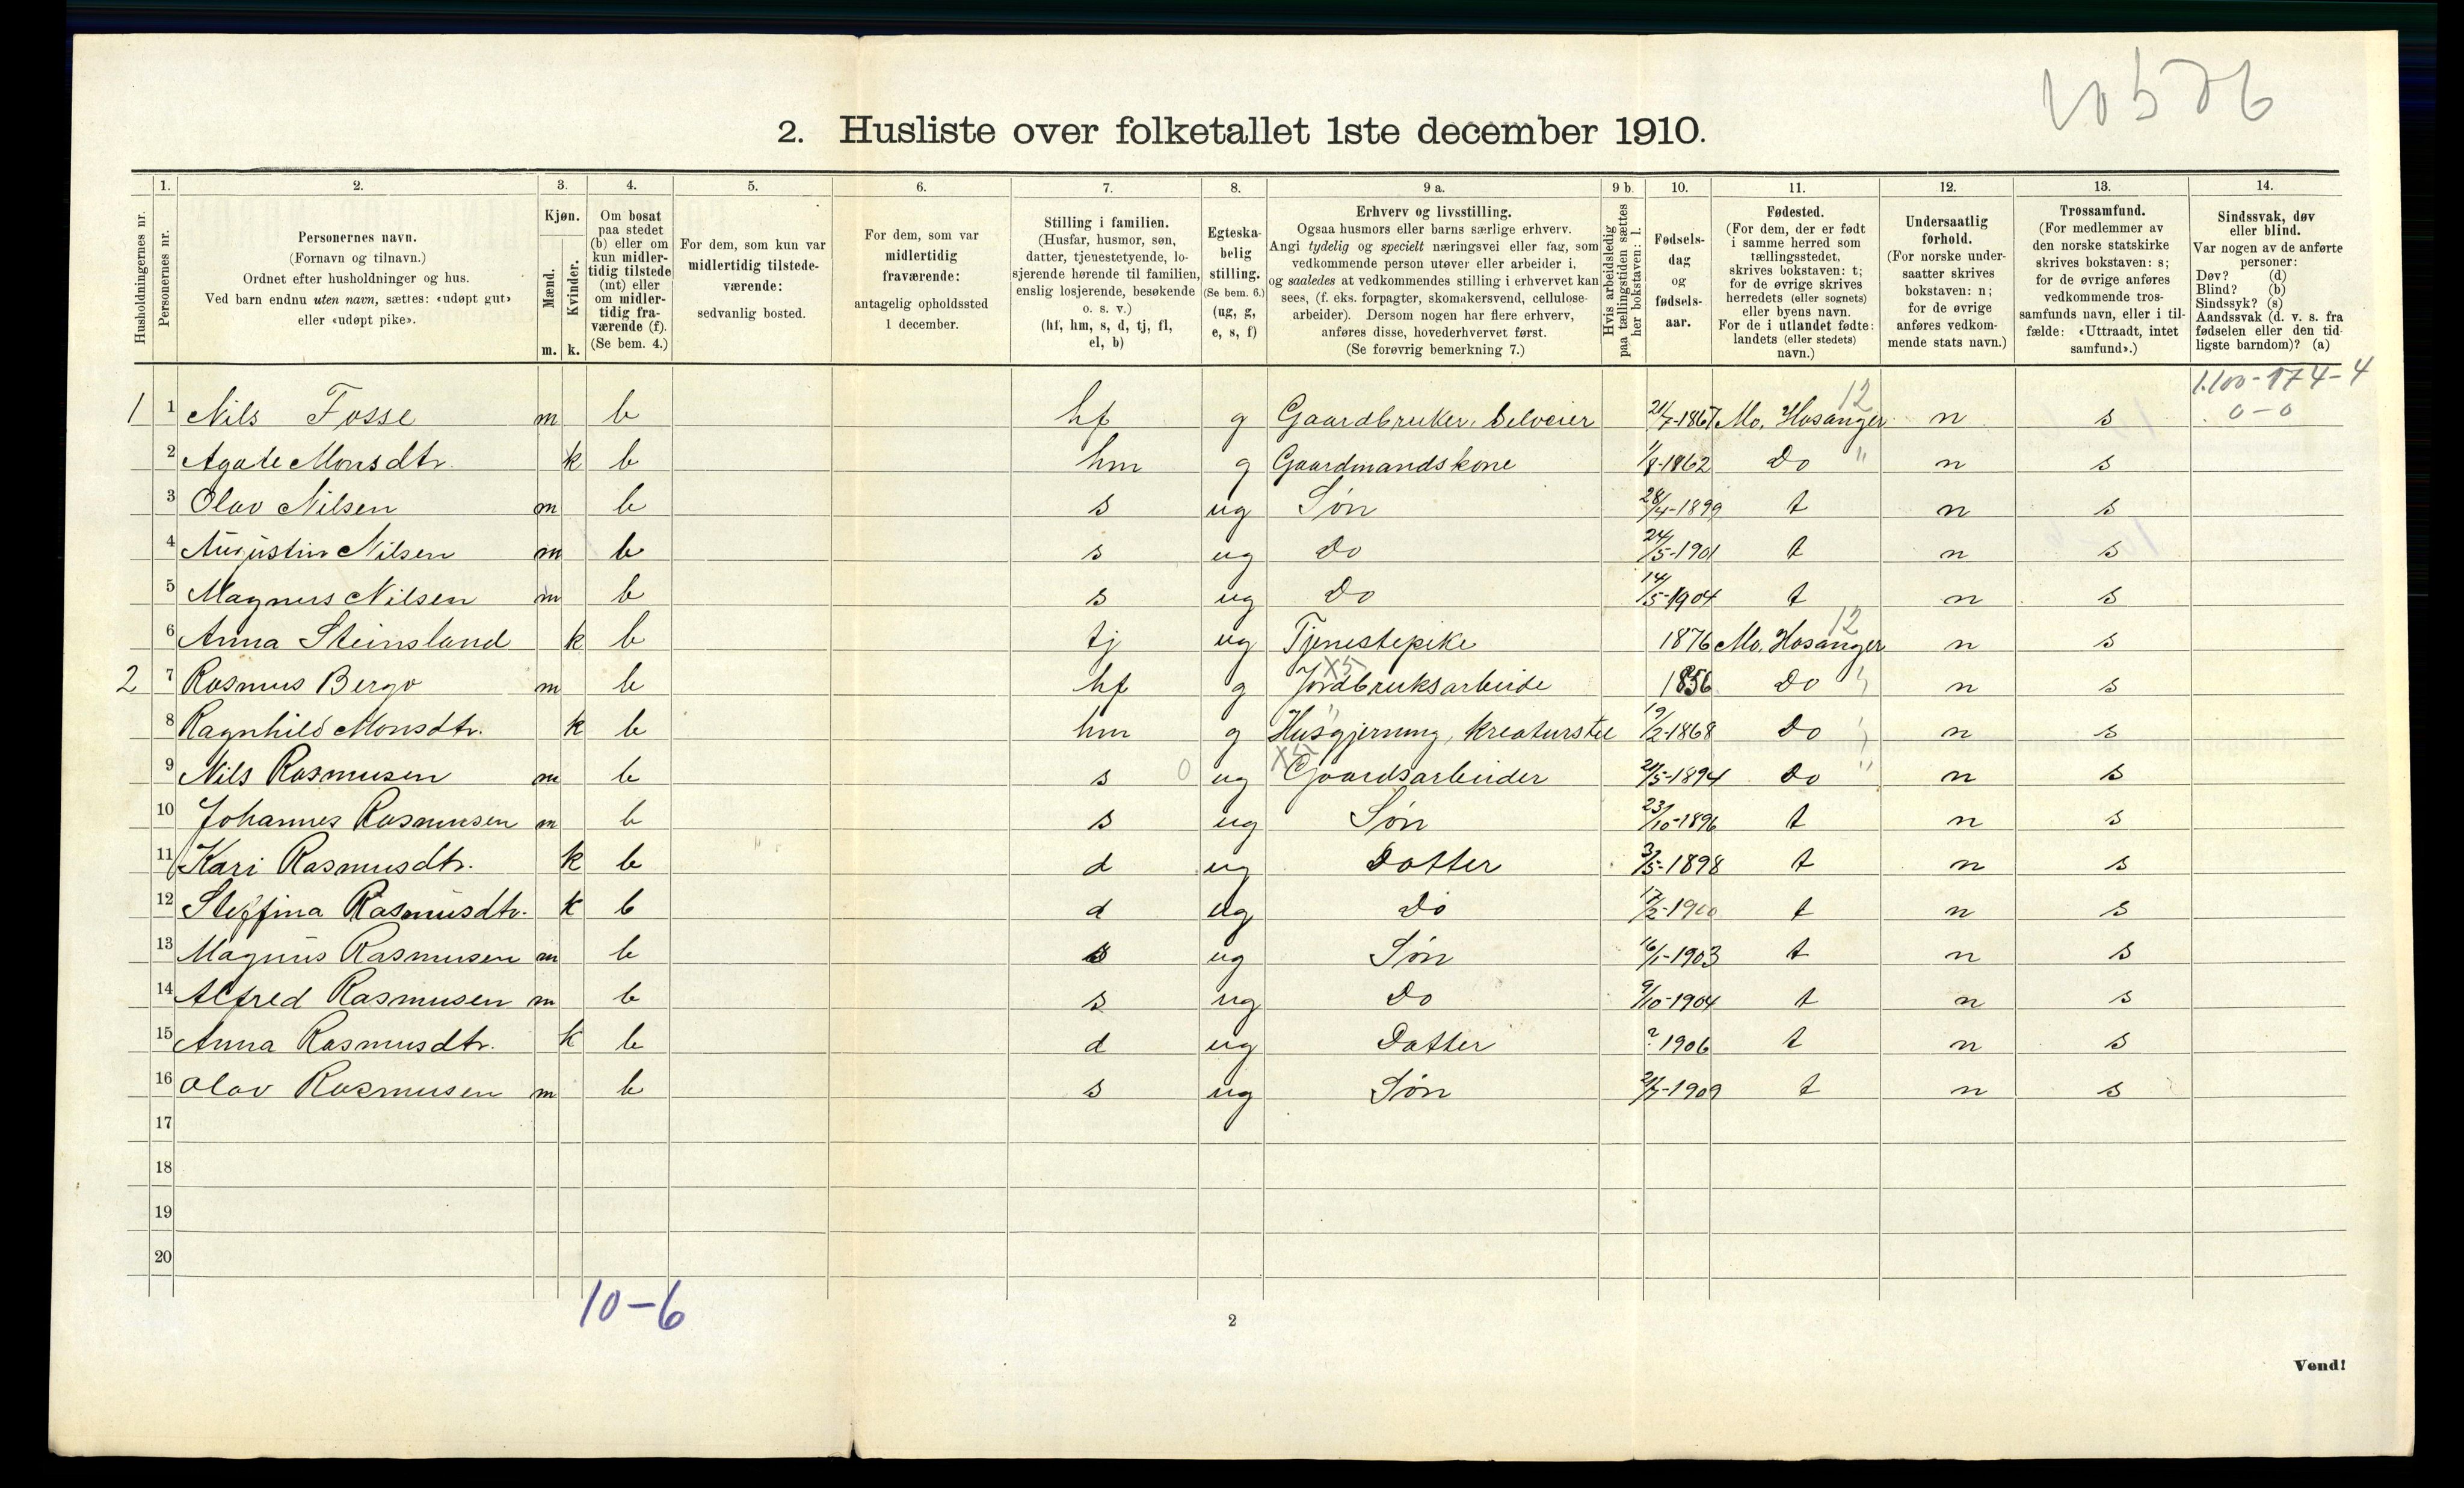 10576
2. Husliste over folketallet 1ste december 1910.
Husholdningernes nr.
1. Personernes nr.
2. Personernes navn. (Fornavn og tilnavn.) Ordnet efter husholdninger og hus. Ved barn endnu uten navn, sættes: «udøpt gut» eller «udøpt pike».
3. Kjøn. Mænd. Kvinder. m. k.
4. Om bosat paa stedet (b) eller om kun midlertidig tilstede (mt) eller om midlertidig fraværende (f). (Se bem. 4.)
5. For dem, som kun var midlertidig tilstedeværende: sedvanlig bosted.
6. For dem, som var midlertidig fraværende: antagelig opholdssted 1 december.
7. Stilling i familien. (Husfar, husmor, søn, datter, tjenestetyende, losjerende hørende til familien, enslig losjerende, besøkende o. s. v.) (hf, hm, s, d, tj, fl, el, b)
8. Egteskabelig stilling. (Se bem. 6.) (ug, g, e, s, f)
9 a. Erhverv og livsstilling. Ogsaa husmors eller barns særlige erhverv. Angi tydelig og specielt næringsvei eller fag, som vedkommende person utøver eller arbeider i, og saaledes at vedkommendes stilling i erhvervet kan sees, (f. eks. forpagter, skomakersvend, cellulosearbeider). Dersom nogen har flere erhverv, anføres disse, hovederhvervet først. (Se forøvrig bemerkning 7.)
9 b. Hvis arbeidsledig paa tællingstiden sættes her bokstaven: l.
10. Fødselsdag og fødselsaar.
11. Fødested. (For dem, der er født i samme herred som tællingsstedet, skrives bokstaven: t; for de øvrige skrives herredets (eller sognets) eller byens navn. For de i utlandet fødte: landets (eller stedets) navn.)
12. Undersaatlig forhold. (For norske undersaatter skrives bokstaven: n; for de øvrige anføres vedkommende stats navn.)
13. Trossamfund. (For medlemmer av den norske statskirke skrives bokstaven: s; for de øvrige anføres vedkommende trossamfunds navn, eller i tilfælde: «Uttraadt, intet samfund».)
14. Sindssvak, døv eller blind. Var nogen av de anførte personer: Døv? (d) Blind? (b) Sindssyk? (s) Aandssvak (d. v. s. fra fødselen eller den tidligste barndom)? (a)
1.100-174-4
1 1 Nils Fosse m b hf g Gaardbruker, Selveier 21/7-1867 Mo, Hosanger 12 n s 0-0
2 Agate Monsdtr. k b hm g Gaardmandskone 1/8-1862 Do " n s
3 Olav Nilsen m b s ug Søn 28/4-1899 t n s
4 Augustin Nilsen m b s ug Do 24/5-1901 t n s
5 Magnus Nilsen m b s ug Do 14/5-1904 t n s
6 Anna Steinsland k b tj ug Tjenestepike 1876 Mo, Hosanger 12 n s
2 7 Rasmus Bergo m b hf g Jordbruksarbeide 1856 Do " n s
8 Ragnhild Monsdtr. k b hm g Husgjerning, kreaturstel 19/2-1868 Do " n s
9 Nils Rasmusen m b s 0 ug Gaardsarbeider 21/5-1894 Do " n s
10 Johannes Rasmusen m b s ug Søn 23/10-1896 t n s
11 Kari Rasmusdtr. k b d ug Datter 3/5-1898 t n s
12 Steffina Rasmusdtr. k b d ug Do 17/2-1900 t n s
13 Magnus Rasmusen m b s ug Søn 16/1-1903 t n s
14 Alfred Rasmusen m b s ug Do 9/10-1904 t n s
15 Anna Rasmusdtr. k b d ug Datter ? 1906 t n s
16 Olav Rasmusen m b s ug Søn 21/7-1909 t n s
17
18
19
20
10-6
2
Vend!